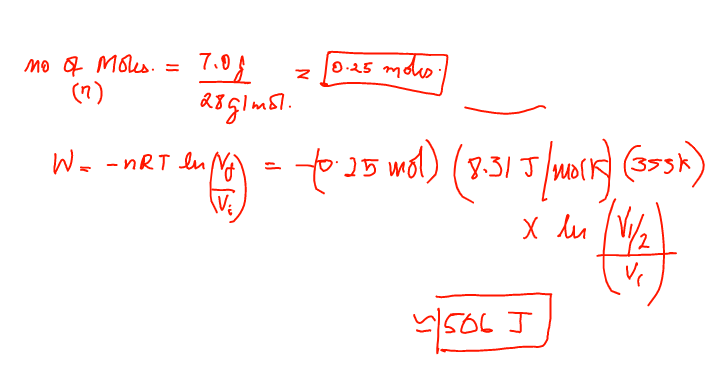 no of Moles. = 7.0g / 28g/mol. = 0.25 moles.
(n)
W = -nRT ln (Vf / Vi) = -(0.25 mol) (8.31 J/mol K) (353K)
X ln (V1/2 / V1)
≃ 506 J